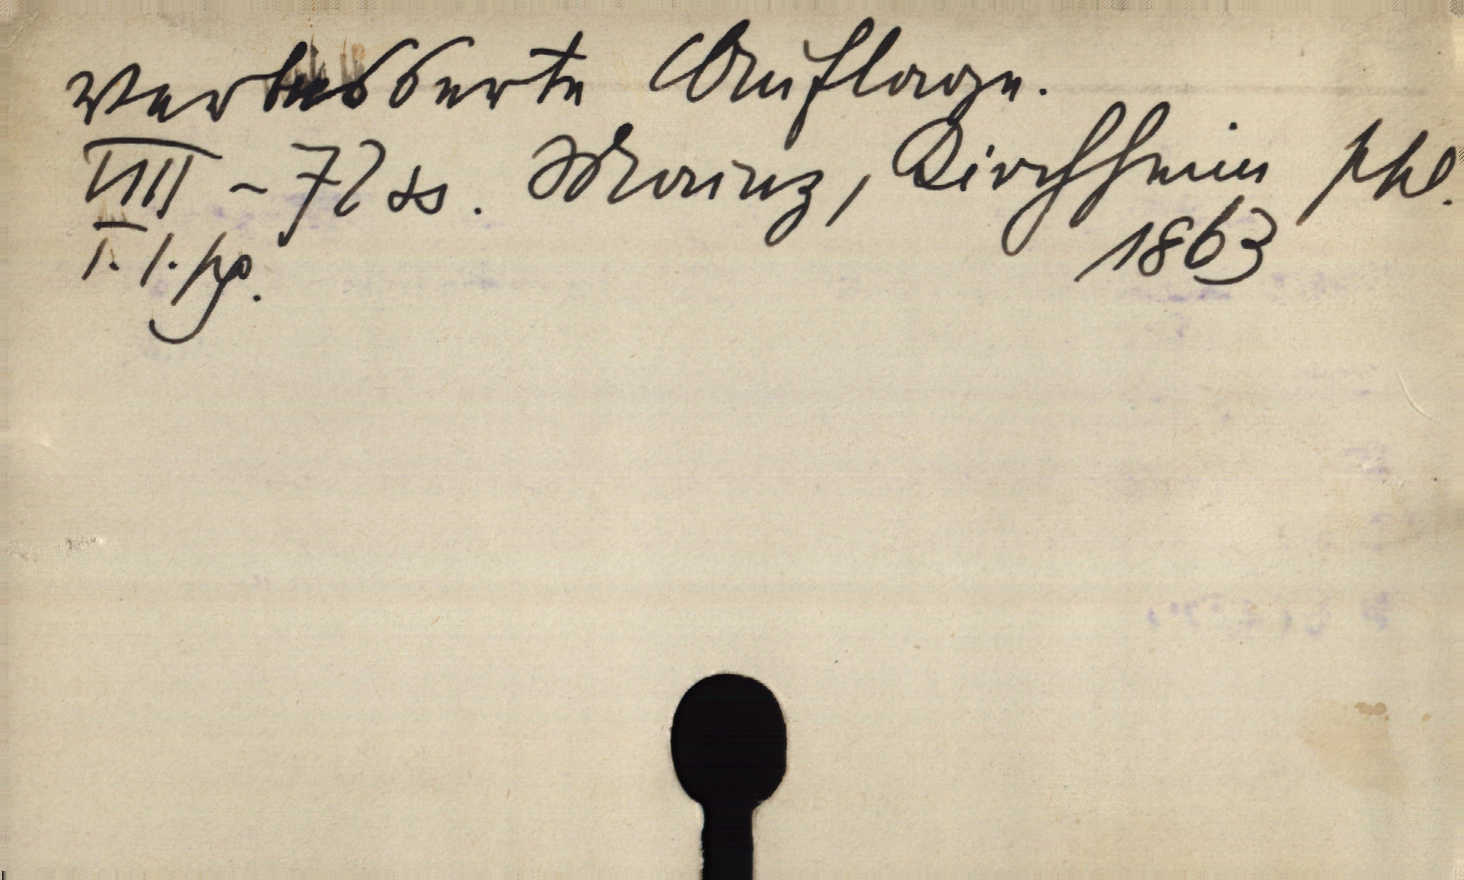 verbesserte Auflage.
VIII - 72 ss. Mainz, Kirchheim phl.
1863
1. 1. pp.